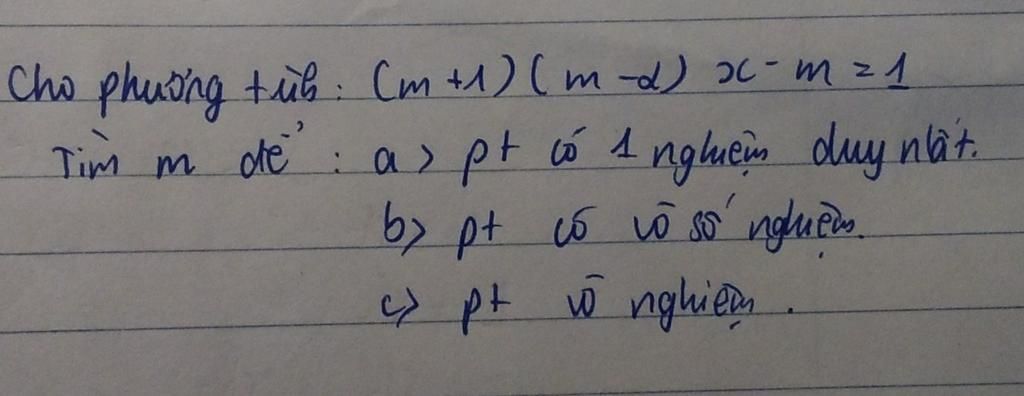 Cho phương trình: (m+1)(m-2) x - m = 1
Tìm m để : a> pt có 1 nghiệm duy nhất.
b> pt có vô số nghiệm.
c> pt vô nghiệm.